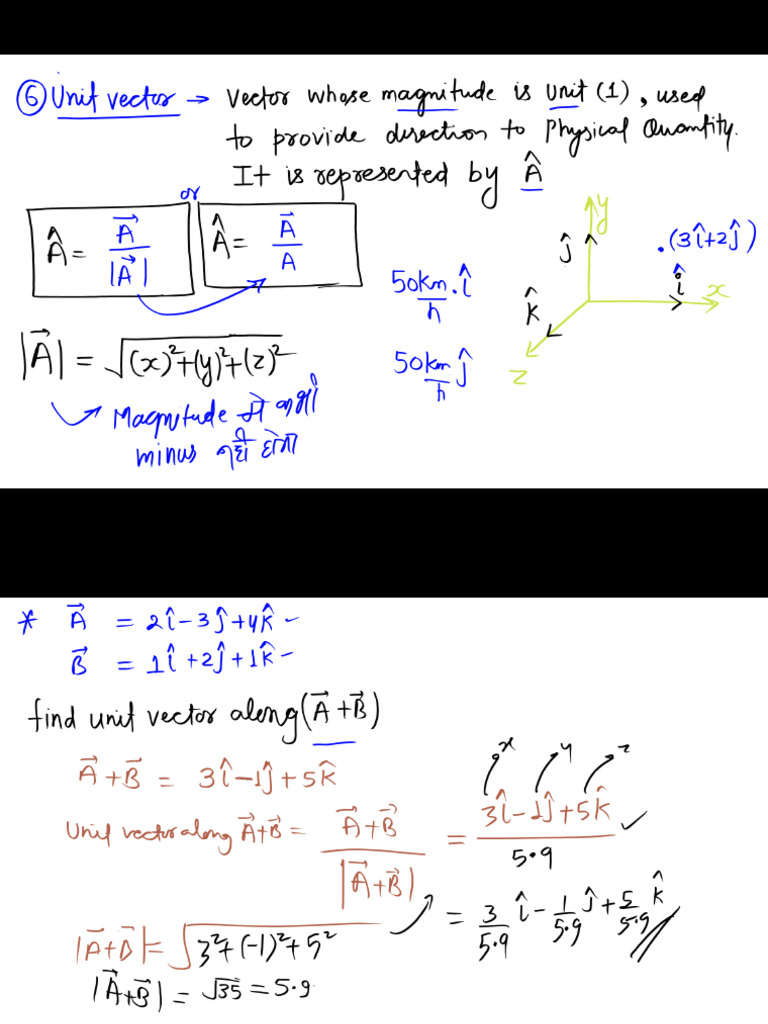 ⑥ Unit vector → Vector whose magnitude is unit (1), used
to provide direction to Physical Quantity.
It is represented by Â
Â = A⃗ / |A⃗| or Â = A⃗ / A
|A⃗| = √((x)²+(y)²+(z)²)
Magnitude में कभी
minus नहीं होगा
50 km/h . î
50 km/h ĵ
y
ĵ
.(3î+2ĵ)
î
x
k̂
z
* A⃗ = 2î-3ĵ+4k̂ -
B⃗ = 1î+2ĵ+1k̂ -
find unit vector along (A⃗+B⃗)
A⃗+B⃗ = 3î-1ĵ+5k̂
x y z
Unit vector along A⃗+B⃗ = A⃗+B⃗ / |A⃗+B⃗| = 3î-1ĵ+5k̂ / 5.9 ✓
= 3/5.9 î - 1/5.9 ĵ + 5/5.9 k̂ //
|A⃗+B⃗| = √(3²+(-1)²+5²)
|A⃗+B⃗| = √35 = 5.9